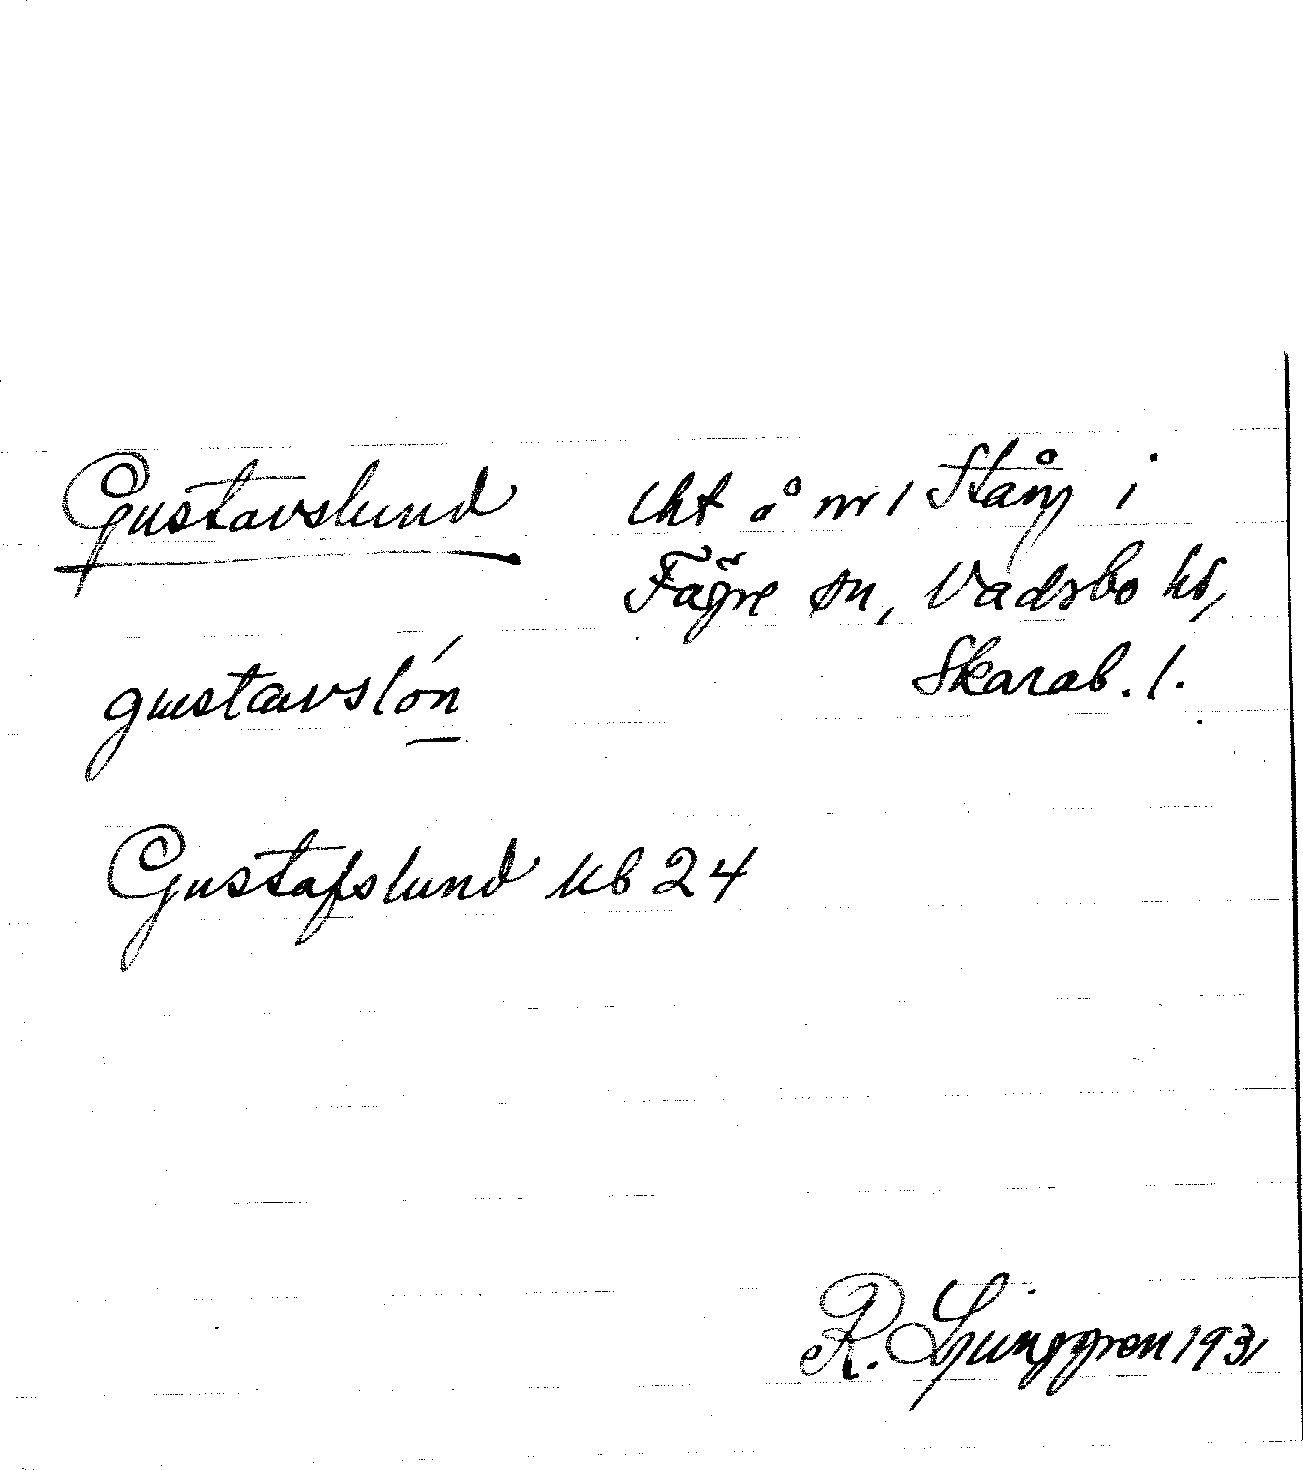 Gustavslund lht å nr 1 Stång i
Fägre sn, Vadsbo hd,
Skarab. l.
gustavslón
Gustafslund kb 24
R. Ljunggren 1931